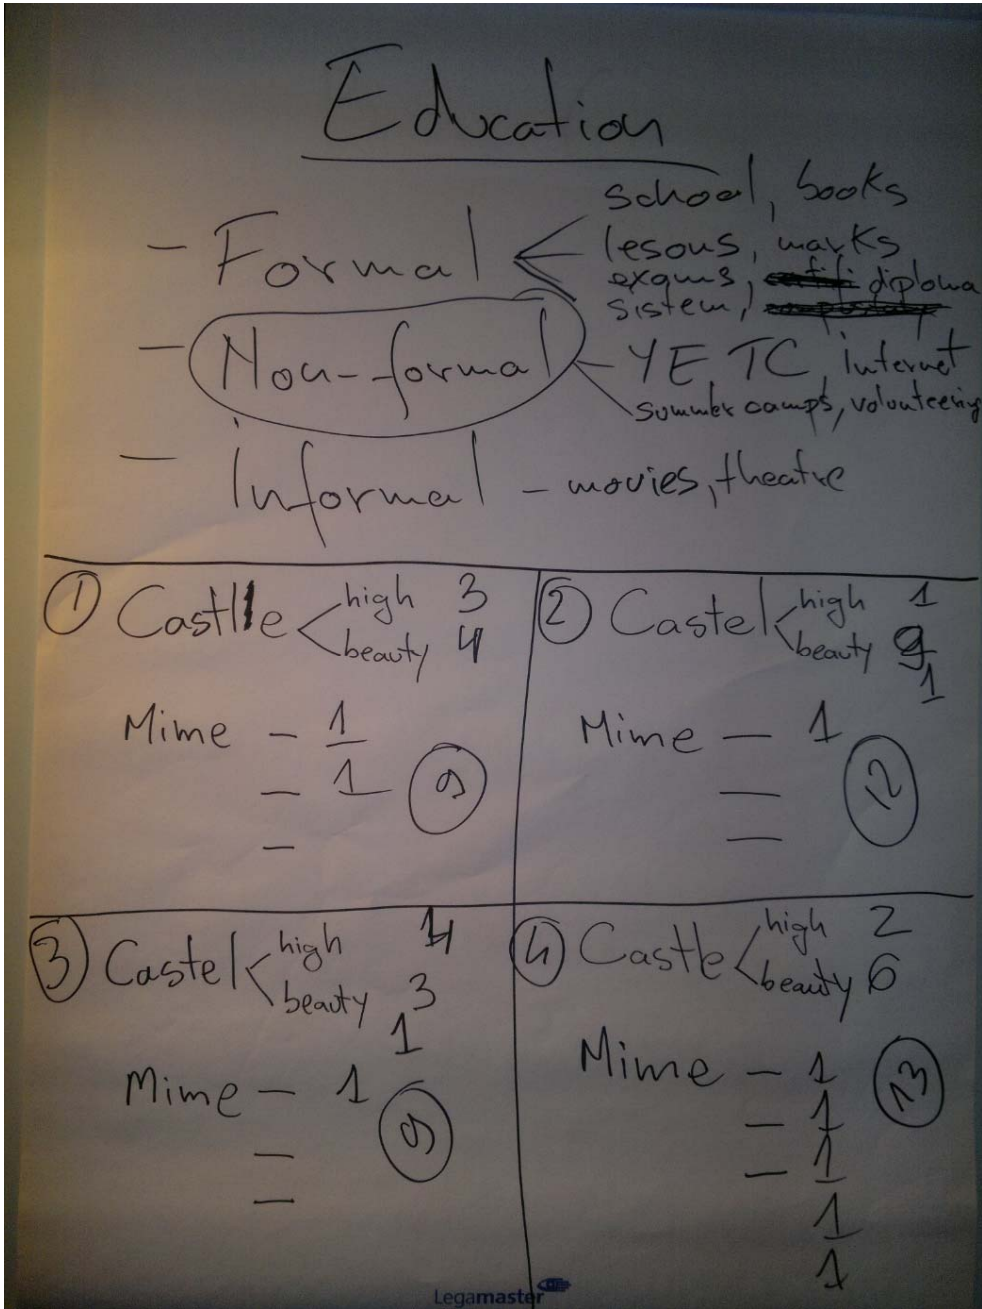 Education
school, books
- Formal lesons, marks
exams, diploma
sistem,
- Non-formal - YE TC internet
summer camps, volunteering
- Informal - movies, theatre
1 Castle high 3
beauty 4
Mime - 1
- 1
-
9
2 Castel high 1
beauty 9
1
Mime - 1
-
-
12
3 Castel high 4
beauty 3
1
Mime - 1
-
-
9
4 Castle high 2
beauty 6
Mime - 1
- 1
- 1
1
1
13
Legamaster